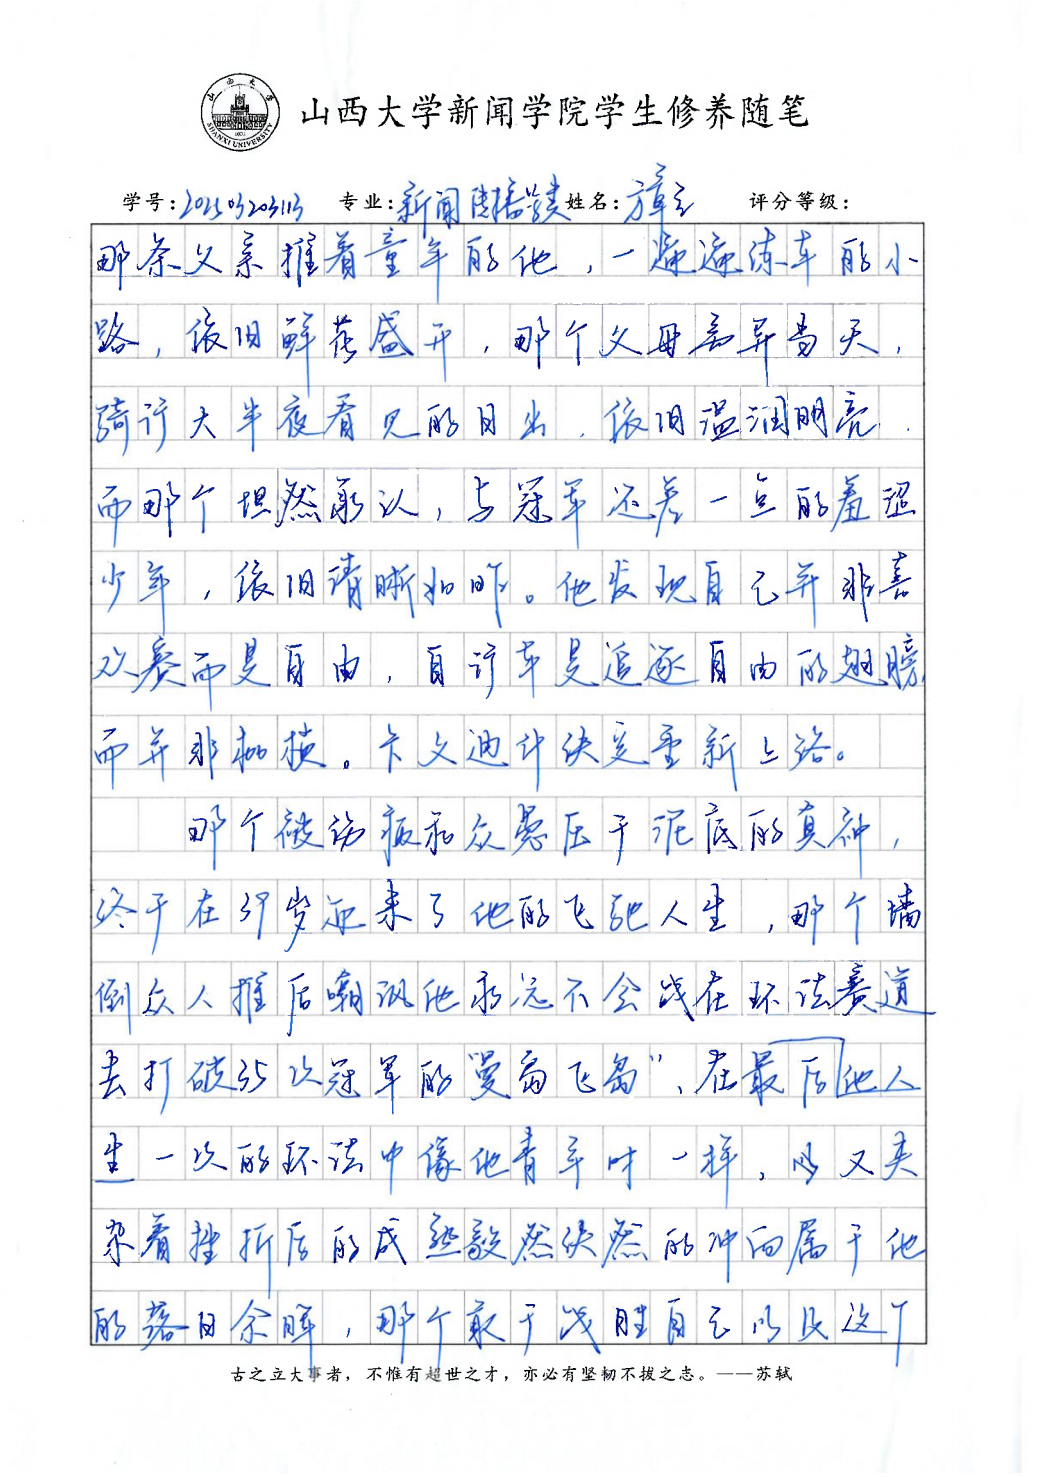 山西大学新闻学院学生修养随笔
SHANXI UNIVERSITY
学号:202503203113 专业:新闻传播学类 姓名:方章 评分等级:
那条父亲推着童年的他，一遍遍练车的小
路，依旧鲜花盛开，那个父母离异当天，
骑行大半夜看见的日出，依旧温润明亮.
而那个坦然承认，与冠军还差一点的羞涩
少年，依旧清晰如昨。他发现自己并非喜
欢赛而是自由，自行车是追逐自由的翅膀
而并非枷锁。卡文迪什决定重新上路。
那个被伤痕和众愚压于泥底的真神，
终于在37岁迎来了他的飞驰人生，那个墙
倒众人推后嘲讽他永远不会战在环法赛道
去打破35次冠军的“曼岛飞岛”、在最后他人
生一次的环法中像他青年时一样，以又夹
杂着挫折后的成熟毅然决然的冲向属于他
的落日余晖，那个敢于战胜自己以及这个
古之立大事者，不惟有超世之才，亦必有坚韧不拔之志。——苏轼